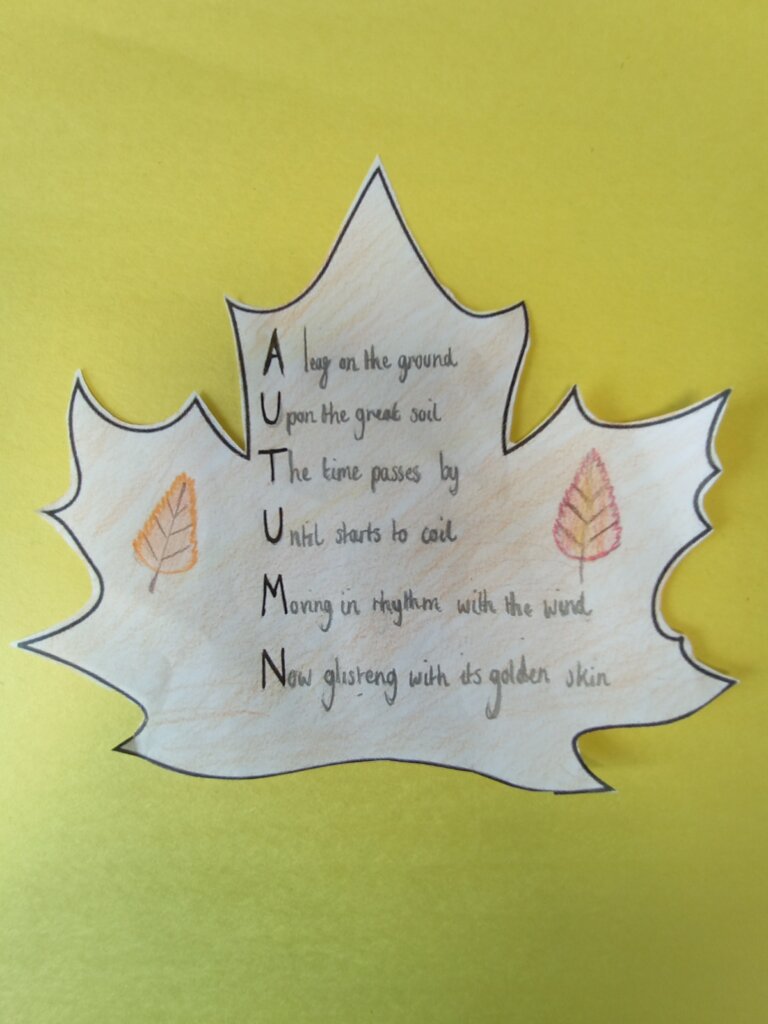 A leaf on the ground
Upon the great soil
The time passes by
Until starts to coil
Moving in rhythm with the wind
Now glisteng with its golden skin